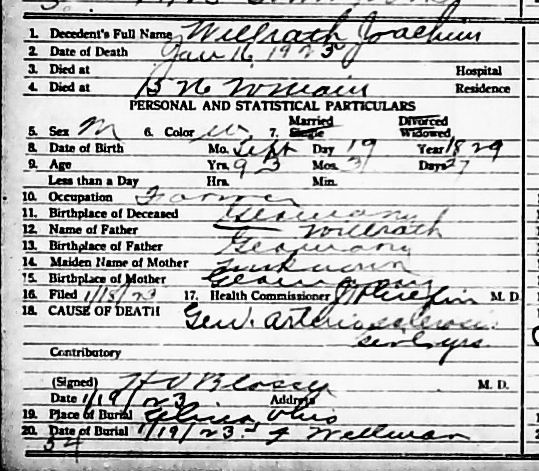 1. Decedent's Full Name Willrath Joachim
2. Date of Death Jan 16 1923
3. Died at Hospital
4. Died at Residence
PERSONAL AND STATISTICAL PARTICULARS
5. Sex M 6. Color W 7. Married Single Divorced Widowed
8. Date of Birth Mo. Sept Day 19 Year 1829
9. Age Yrs. 93 Mos. 3 Days 27
Less than a Day Hrs. Min.
10. Occupation Farmer
11. Birthplace of Deceased Germany
12. Name of Father Willrath
13. Birthplace of Father Germany
14. Maiden Name of Mother Unknown
15. Birthplace of Mother Germany
16. Filed 1/18/23 17. Health Commissioner M. D.
18. CAUSE OF DEATH Gen. arteriosclerosis
yrs.
Contributory
(Signed) M. D.
Date 1/19/23 Address
19. Place of Burial Ohio
20. Date of Burial 1/19/23 Wellman
54